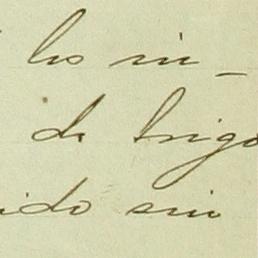 los in-
de trigo
ido sin